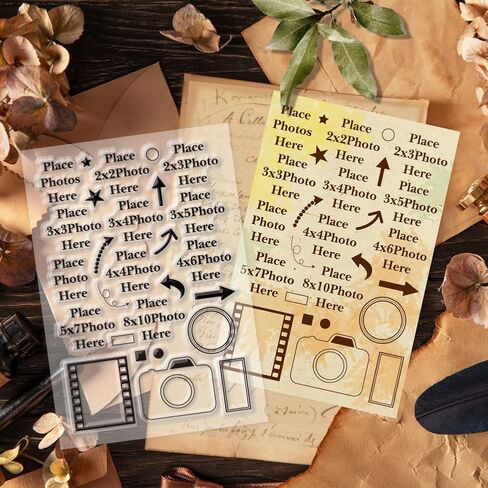 Place
Photos
Here
Place
2x2Photo
Here
Place
2x3Photo
Here
Place
3x3Photo
Here
Place
3x4Photo
Here
Place
3x5Photo
Here
Place
Photo
Here
Place
4x4Photo
Here
Place
4x6Photo
Here
Place
5x7Photo
Here
Place
8x10Photo
Here
Place
Photos
Here
Place
2x2Photo
Here
Place
2x3Photo
Here
Place
3x3Photo
Here
Place
3x4Photo
Here
Place
3x5Photo
Here
Place
Photo
Here
Place
4x4Photo
Here
Place
4x6Photo
Here
Place
5x7Photo
Here
Place
8x10Photo
Here